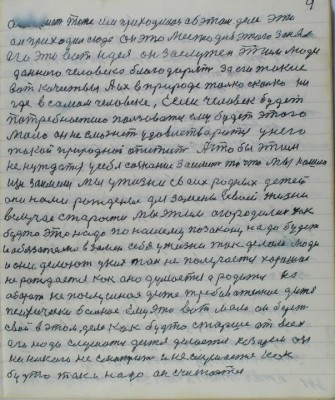 9
им приходилось об этом деле это
он приходил сюда он это место для этого занял
Но это вот идея он заслужен этим люди
данного человека благодарят за его такие
вот качества А их в природе только сколько ни
где в самом человеке, если человек будет
потребностью пользоваться ему будет этого
мало он не сможет удовлетворить у него
такой природный аппетит А то бы этим
не нуждался у себя сознании заимел то что мы нашли
мы заимели мы у жизни своих родных детей
они нами рождение для замены своей жизни
в случае старости мы этим огородились как
будто это надо по нашему по закону надо будет
и обязательно взамен себя у жизни так делали люди
и они делают у них так не получается хорошее
не рождается как оно думается а родится на
оборот не полноценная даже требовательное дитя
психически больное ему это вот мало он будет
свой в этом деле как будто старше от всех
его надо слушать дитя делается козырем он
ни на кого не смотрит и не слушается как
будто так и надо он считается